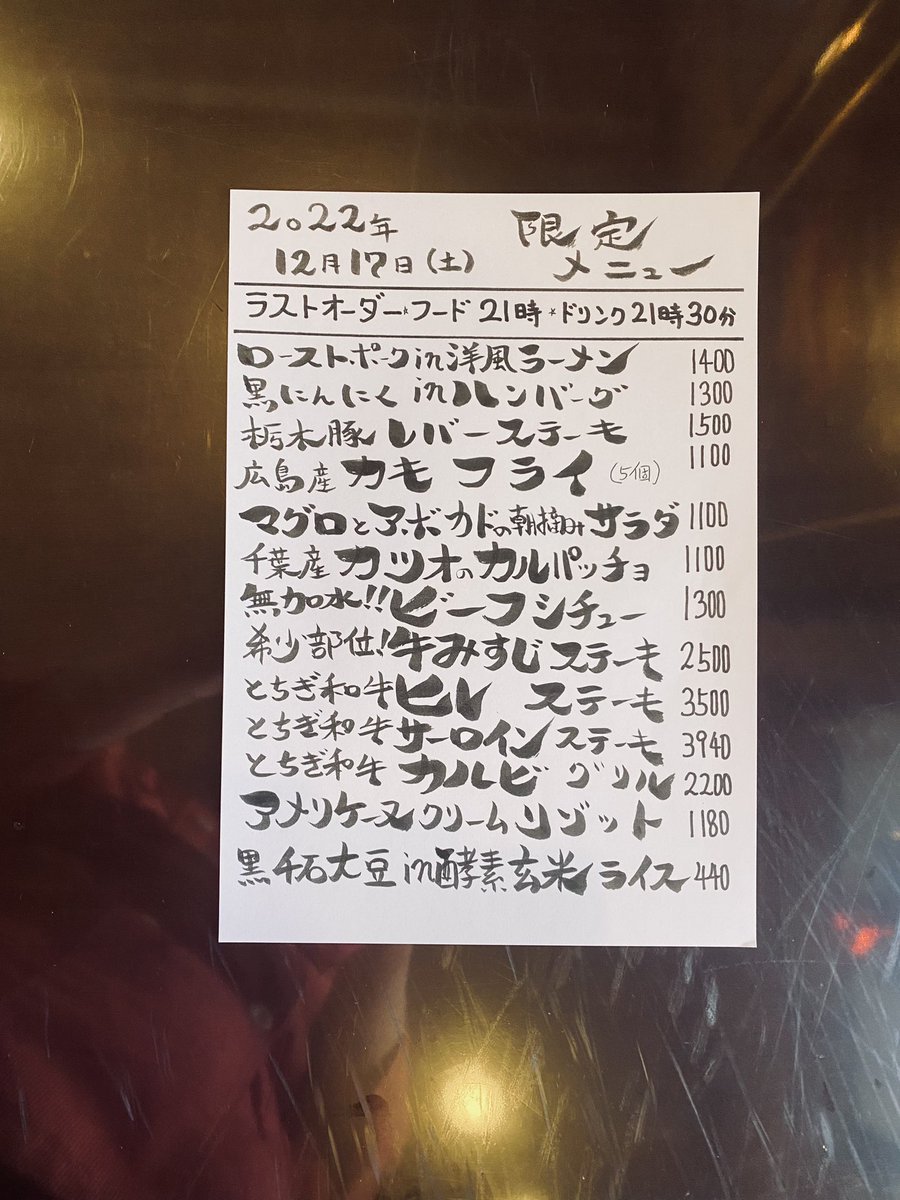 2022年
12月17日(土)
限定
メニュー
ラストオーダー*フード 21時*ドリンク21時30分
ローストポークin洋風ラーメン 1400
黒にんにく inハンバーグ 1300
栃木豚 レバーステーキ 1500
広島産 カキ フライ (5個) 1100
マグロとアボカドの朝摘みサラダ 1100
千葉産 カツオのカルパッチョ 1100
無加水!!ビーフシチュー 1300
希少部位!牛みすじステーキ 2500
とちぎ和牛 ヒレ ステーキ 3500
とちぎ和牛 サーロインステーキ 3940
とちぎ和牛 カルビ グリル 2200
アメリケーヌクリームリゾット 1180
黒千石大豆in酵素玄米ライス 440